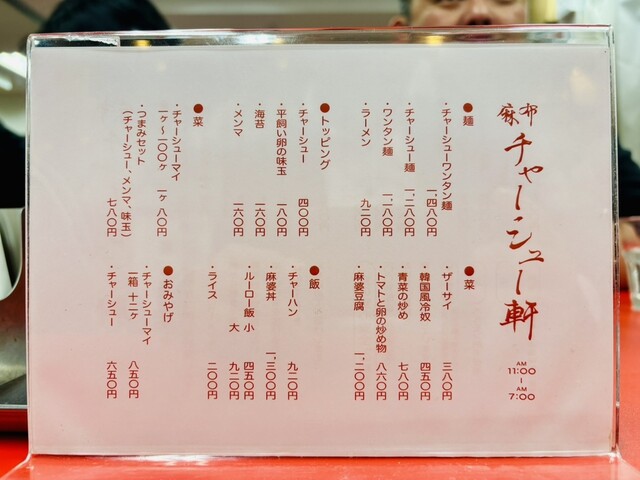 麻布
チャーシュー軒
AM
11:00
|
AM
7:00
●麺
・チャーシューワンタン麺 一、四八〇円
・チャーシュー麺 一、二八〇円
・ワンタン麺 一、一八〇円
・ラーメン 九二〇円
●トッピング
・チャーシュー 四〇〇円
・平飼い卵の味玉 一八〇円
・海苔 一六〇円
・メンマ 一六〇円
●菜
・チャーシューマイ
一ヶ〜一〇〇ヶ 一ヶ 八〇円
・つまみセット
(チャーシュー、メンマ、味玉)
七八〇円
●菜
・ザーサイ 三八〇円
・韓国風冷奴 四五〇円
・青菜の炒め 七八〇円
・トマトと卵の炒め物 八六〇円
・麻婆豆腐 一、二〇〇円
●飯
・チャーハン 九二〇円
・麻婆丼 一、三〇〇円
・ルーロー飯 小 四五〇円
大 九二〇円
・ライス 二〇〇円
●おみやげ
・チャーシューマイ
一箱 十二ヶ 八五〇円
・チャーシュー 六五〇円